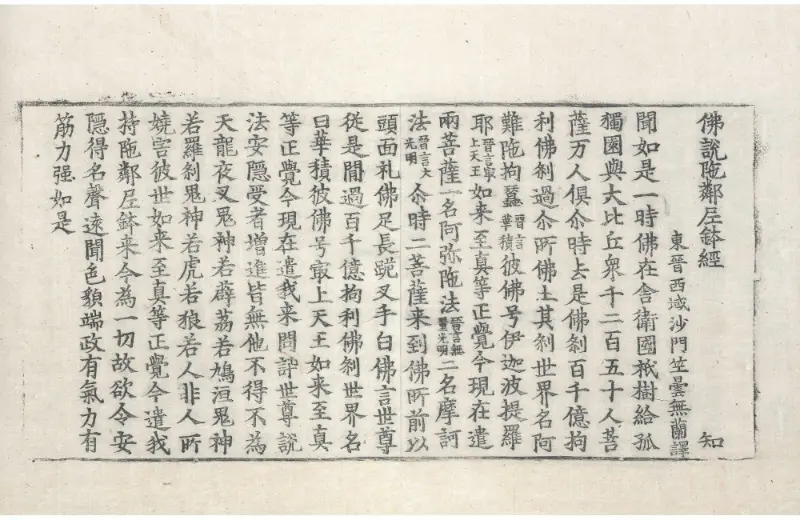 佛說陁鄰𡰱鉢經 知
東晉西域沙門竺曇無蘭譯
聞如是一時佛在舍衛國祇樹給孤
獨園與大比丘衆千二百五十人菩
薩万人俱尒時去是佛剎百千億拘
利佛剎過尒所佛土其剎世界名阿
難陁拘蠶晉言華積彼佛号伊迦波提羅
耶晉言㝡上天王如来至真等正覺今現在遣
兩菩薩一名阿弥陁法晉言無量光明二名摩訶
法晉言大光明尒時二菩薩来到佛所前以
頭面礼佛足長跪叉手白佛言世尊
從是間過百千億拘利佛剎世界名
曰華積彼佛号㝡上天王如来至真
等正覺今現在遣我来問訊世尊說
法安隱受者增進皆無他不得不為
天龍夜叉鬼神若薜荔若鳩洹鬼神
若羅剎鬼神若虎若狼若人非人所
嬈害彼世如来至真等正覺今遣我
持陁鄰𡰱鉢来今為一切故欲令安
隱得名聲遠聞色貌端政有氣力有
筋力强如是